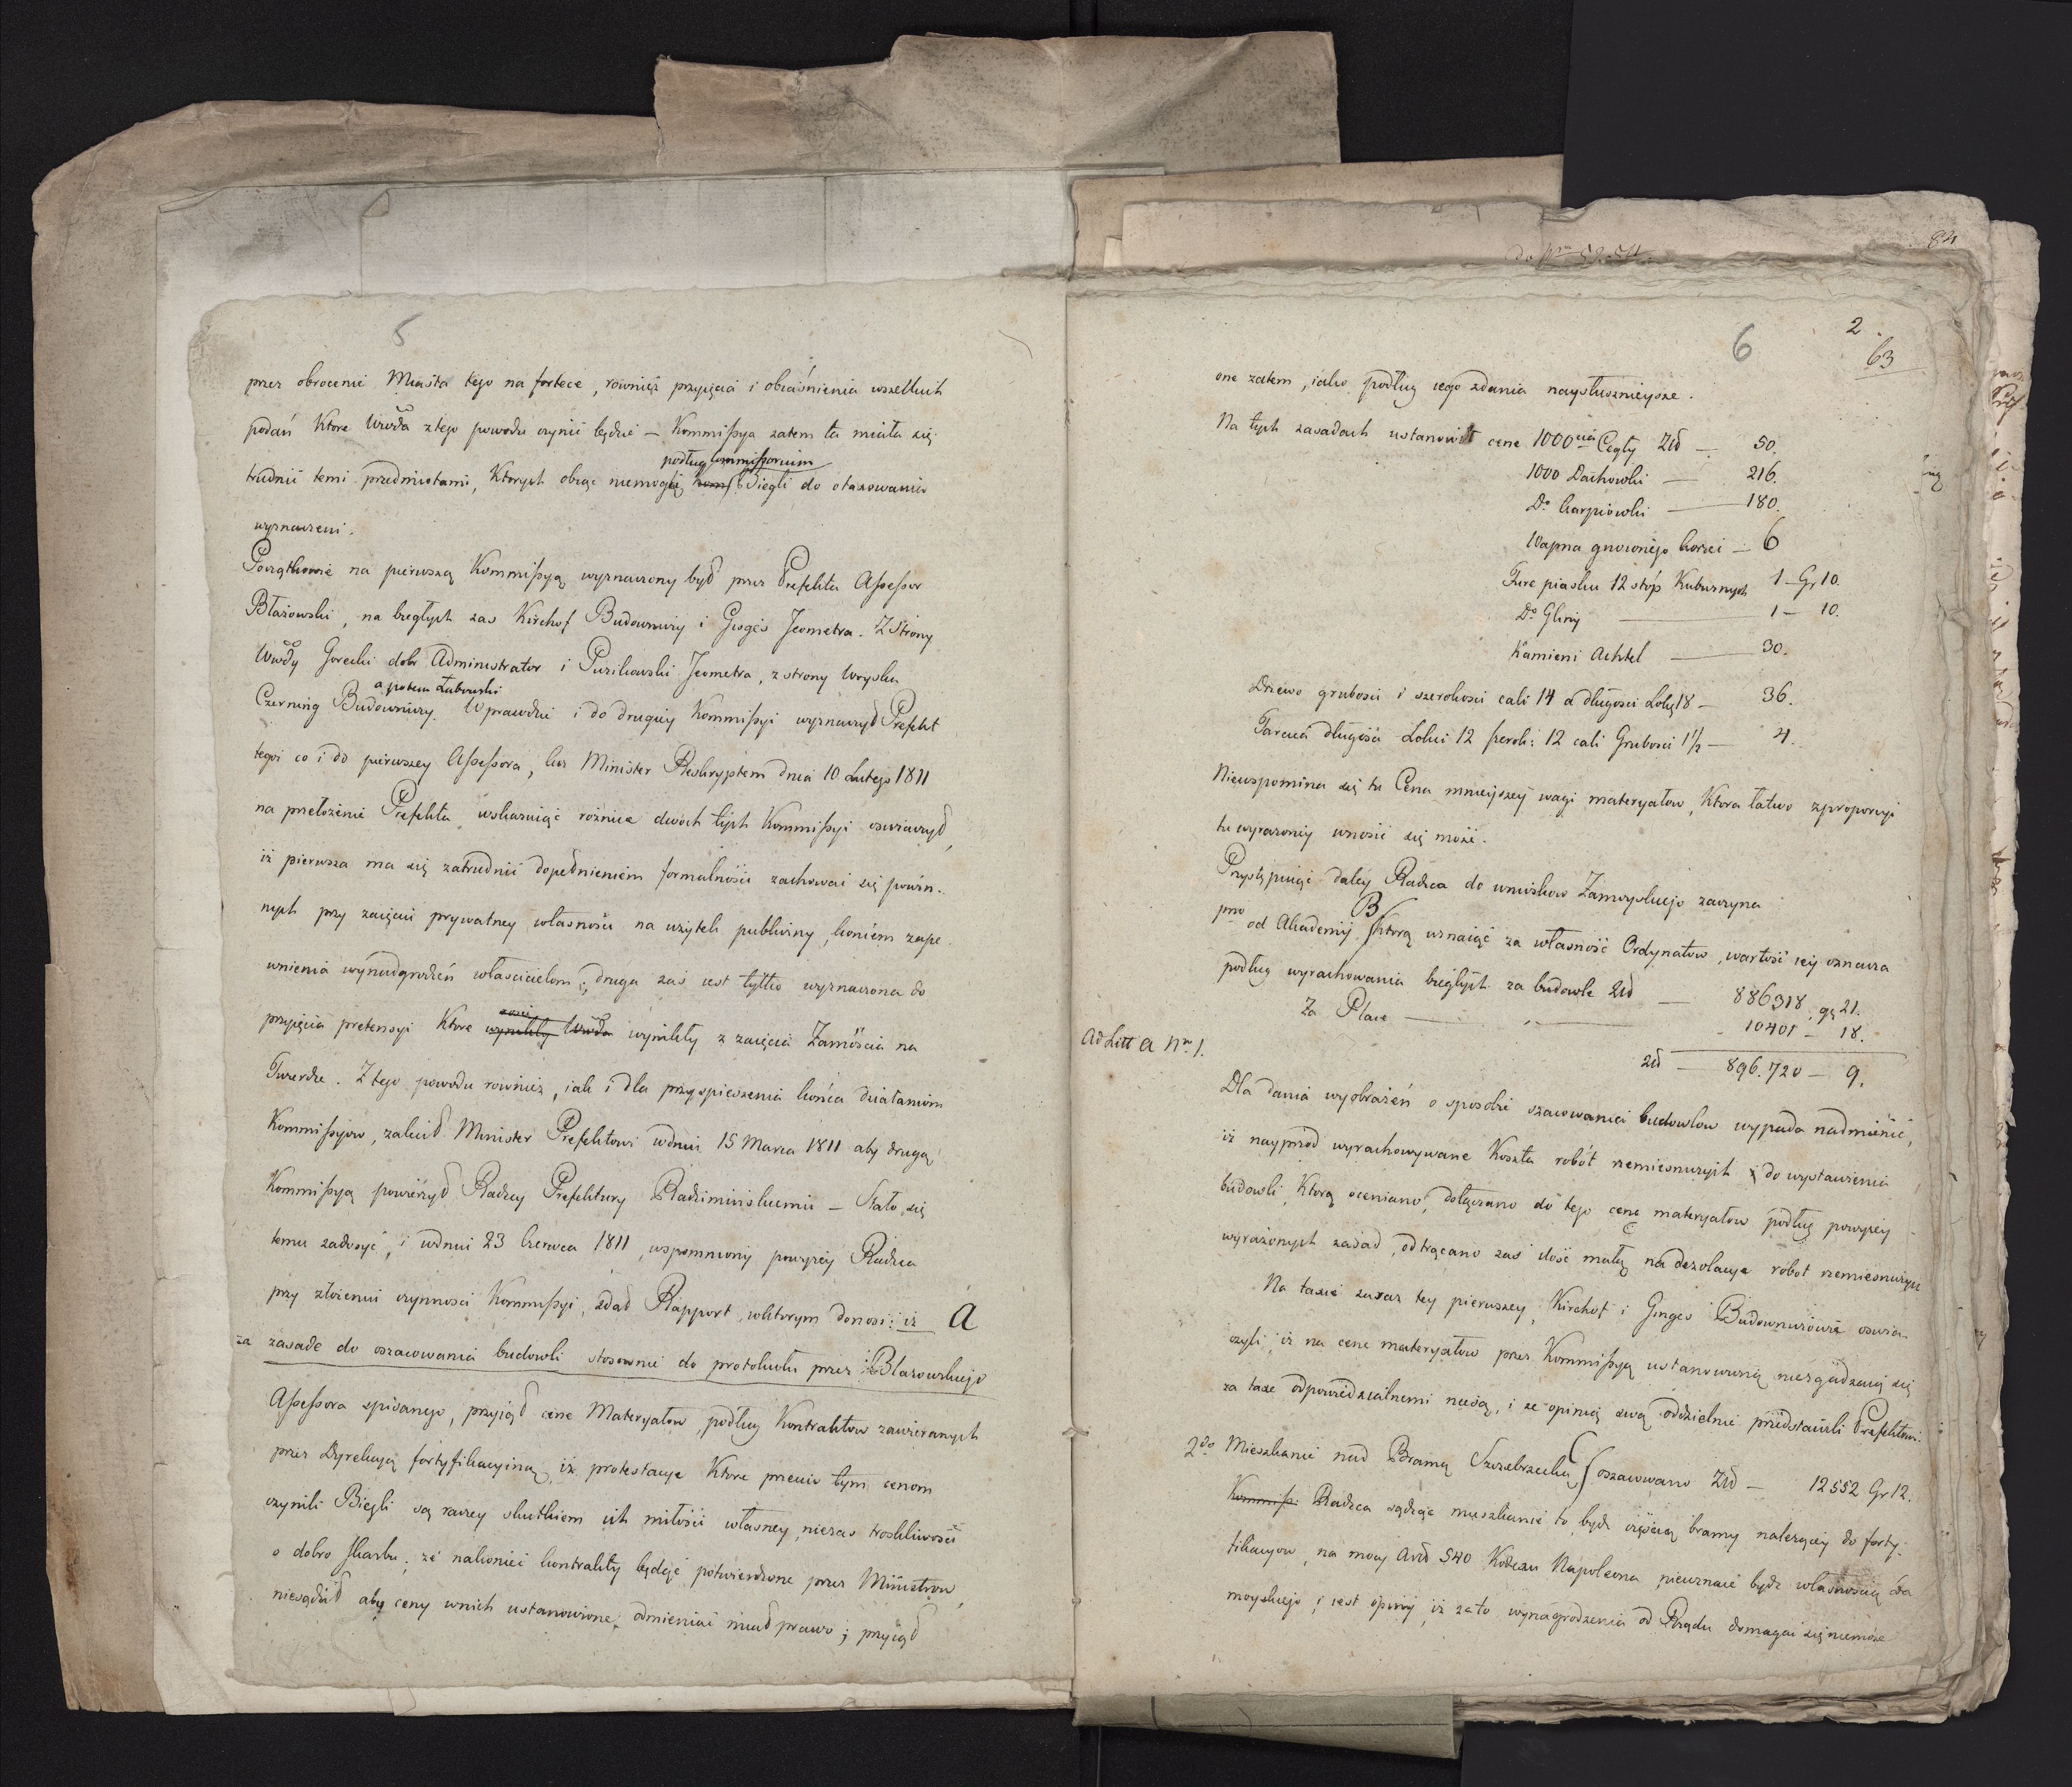 5
przez obrocenie Miasta tego na fortece, rownież przyięcia i obiaśnienia wszelkich
podań Ktore Wwda z tego powodu czynić będzie – Kommissya zatem ta miała się
podług Commissorium
trudnić temi przedmiotami, Ktorych obiąć niemogli Biegli do otaxowania
wyznaczeni.
Początkowie na pierwszą Kommissyą wyznaczony był przez Prefekta Assessor
Błażowski, na biegłych zas Kirchof Budowniczy i Gioges Jeometra. Z Strony
Wwdy Gorecki dobr Administrator i Puzikowski Jeometra, z strony Woyska
a potem Łubowski
Czerning Budowniczy. Wprawdzie i do drugiey Kommissyi wyznaczył Prefekt
tegoż co i do pierwszey Assessora, lecz Minister Reskryptem dnia 10 Lutego 1811
na przełożenie Prefekta wskazuiąc roznice dwóch tych Kommissyi oswiadczył,
iż pierwsza ma się zatrudnić dopełnieniem formalności zachować się powin-
nych przy zaięciu prywatney własności na użytek publiczny, koncem zape-
wnienia wynadgrodzeń właścicielom; druga zaś iest tylko wyznaczona do
przyięcia pretensyi Ktore wynikły Wwda wynikły z zaięcia Zamościa na
Twierdze. Z tego powodu rownież, iak i dla przyspieszenia końca działaniom
Kommissyow, zalecił Minister Prefektowi wdniu 15 Marca 1811 aby drugą
Kommissyą powierzył Radzcy Prefektury Radzimińskiemu – Stało się
temu zadosyć, i wdniu 23 Czerwca 1811 wspomniony powyżey Radzca
przy złożeniu czynnosci Kommissyi, zdał Rapport, wktorym donosi: iż A
za zasade do oszacowania budowli stosownie do protokułu przez Błazowskiego
Assessora spisanego, przyiął cene Materyałow, podług Kontraktow zawieranych
przez Dyrekcyą fortyfikacyiną, iż protestacye Ktore przeciw tym cenom
czynili Biegli są raczey skutkiem ich miłości własney, niezas troskliwości
o dobro skarbu; że nakoniec kontrakty będąc potwierdzone przez Ministrow,
niesądził aby ceny wnich ustanowione, odmieniać miał prawo; przyiął
84
6
2.
63
one zatem, iako podług iego zdania naysłusznieysze.
Na tych zasadach ustanowił cene 1000cia Cegły Złł – 50.
1000 Dachowki – 216.
Do Karpiówki – 180.
Wapna gaszonego korzec – 6
Fure piasku 12 stóp Kubicznych 1 – Gr 10.
Do Gliny – 1 – 10.
Kamieni Achtel – 30.
Drzewo grubosci i szerokosci cali 14 a długosci Łokcy 18 – 36.
Tarcica długości Łokci 12 szerok: 12 cali Grubosci 1½ – 4.
Niewspomina się tu Cena mnieyszey wagi materyałow, Ktora łatwo z proporcyi
tu wyrazoney wnosić się może.
Przystępuiąc daley Radzca do wniosków Zamoyskiego zaczyna
pmo od Akademij B Którą uznaiąc za własność Ordynatow, wartość iey oznacza
podług wyrachowania biegłych za budowle Złł – 886318 gr 21.
Za Place – 10401 – 18.
Ad Litt A Nm 1.
Złł – 896.720 – 9.
Dla dania wyobrażeń o sposobie szacowania budowlow wypada nadmienić,
iż nayprzod wyrachowywane Koszta robót rzemieśniczych do wystawienia
budowli, Ktorą oceniano, dołączano do tego cenę materyałow podług powyżey
wyrażonych zasad, odtrącano zas ilość małą na dezolacye robot rzemiesniczych
Na taxie zaraz tey pierwszey, Kirchof i Gioges Budowniczowie oswia-
czyli, iż na cene materyałow przez Kommissyą ustanowioną niezgadzaią się
za taxe odpowiedzialnemi niesą, i że opinią swą oddzielnie przedstawili Prefektowi.
2do Mieszkanie nad Bramą Szczebrzeską C oszacowano Złł – 12552 Gr 12.
Kommiss. Radzca sądząc mieszkanie to bydz częścią bramy należącey do forty-
fikacyow, na mocy Artł 540 Kodexu Napoleona nieuznaie bydz własnoscią Za
moyskiego i iest opinij iż za to wynagrodzenia od Rządu domagać się niemoże